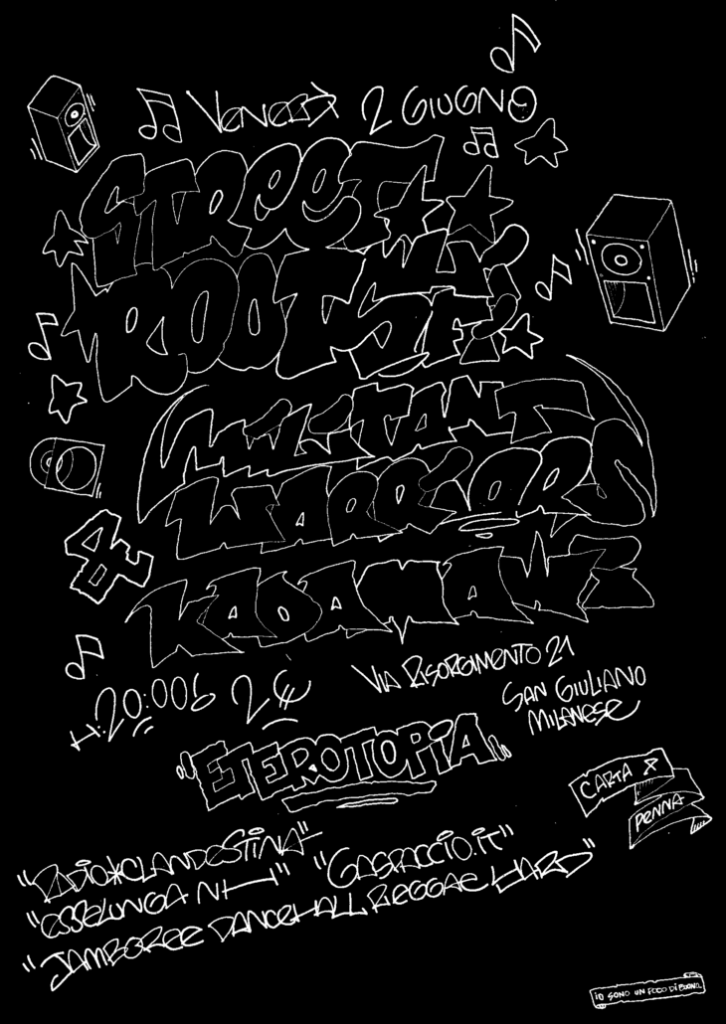 VENERDÌ 2 GIUGNO
STREET
ROOTS
MILITANT
WARRIORS
&
KADAMAWI
H:20:00 2€
VIA RISORGIMENTO 21
SAN GIULIANO
MILANESE
"ETEROTOPIA"
CARTA X
PENNA
"RADIO*CLANDESTINA"
"ESSELUNGA "GASPACCIO.IT"
"JAMBOREE DANCEHALL REGGAE YARD"
IO SONO UN